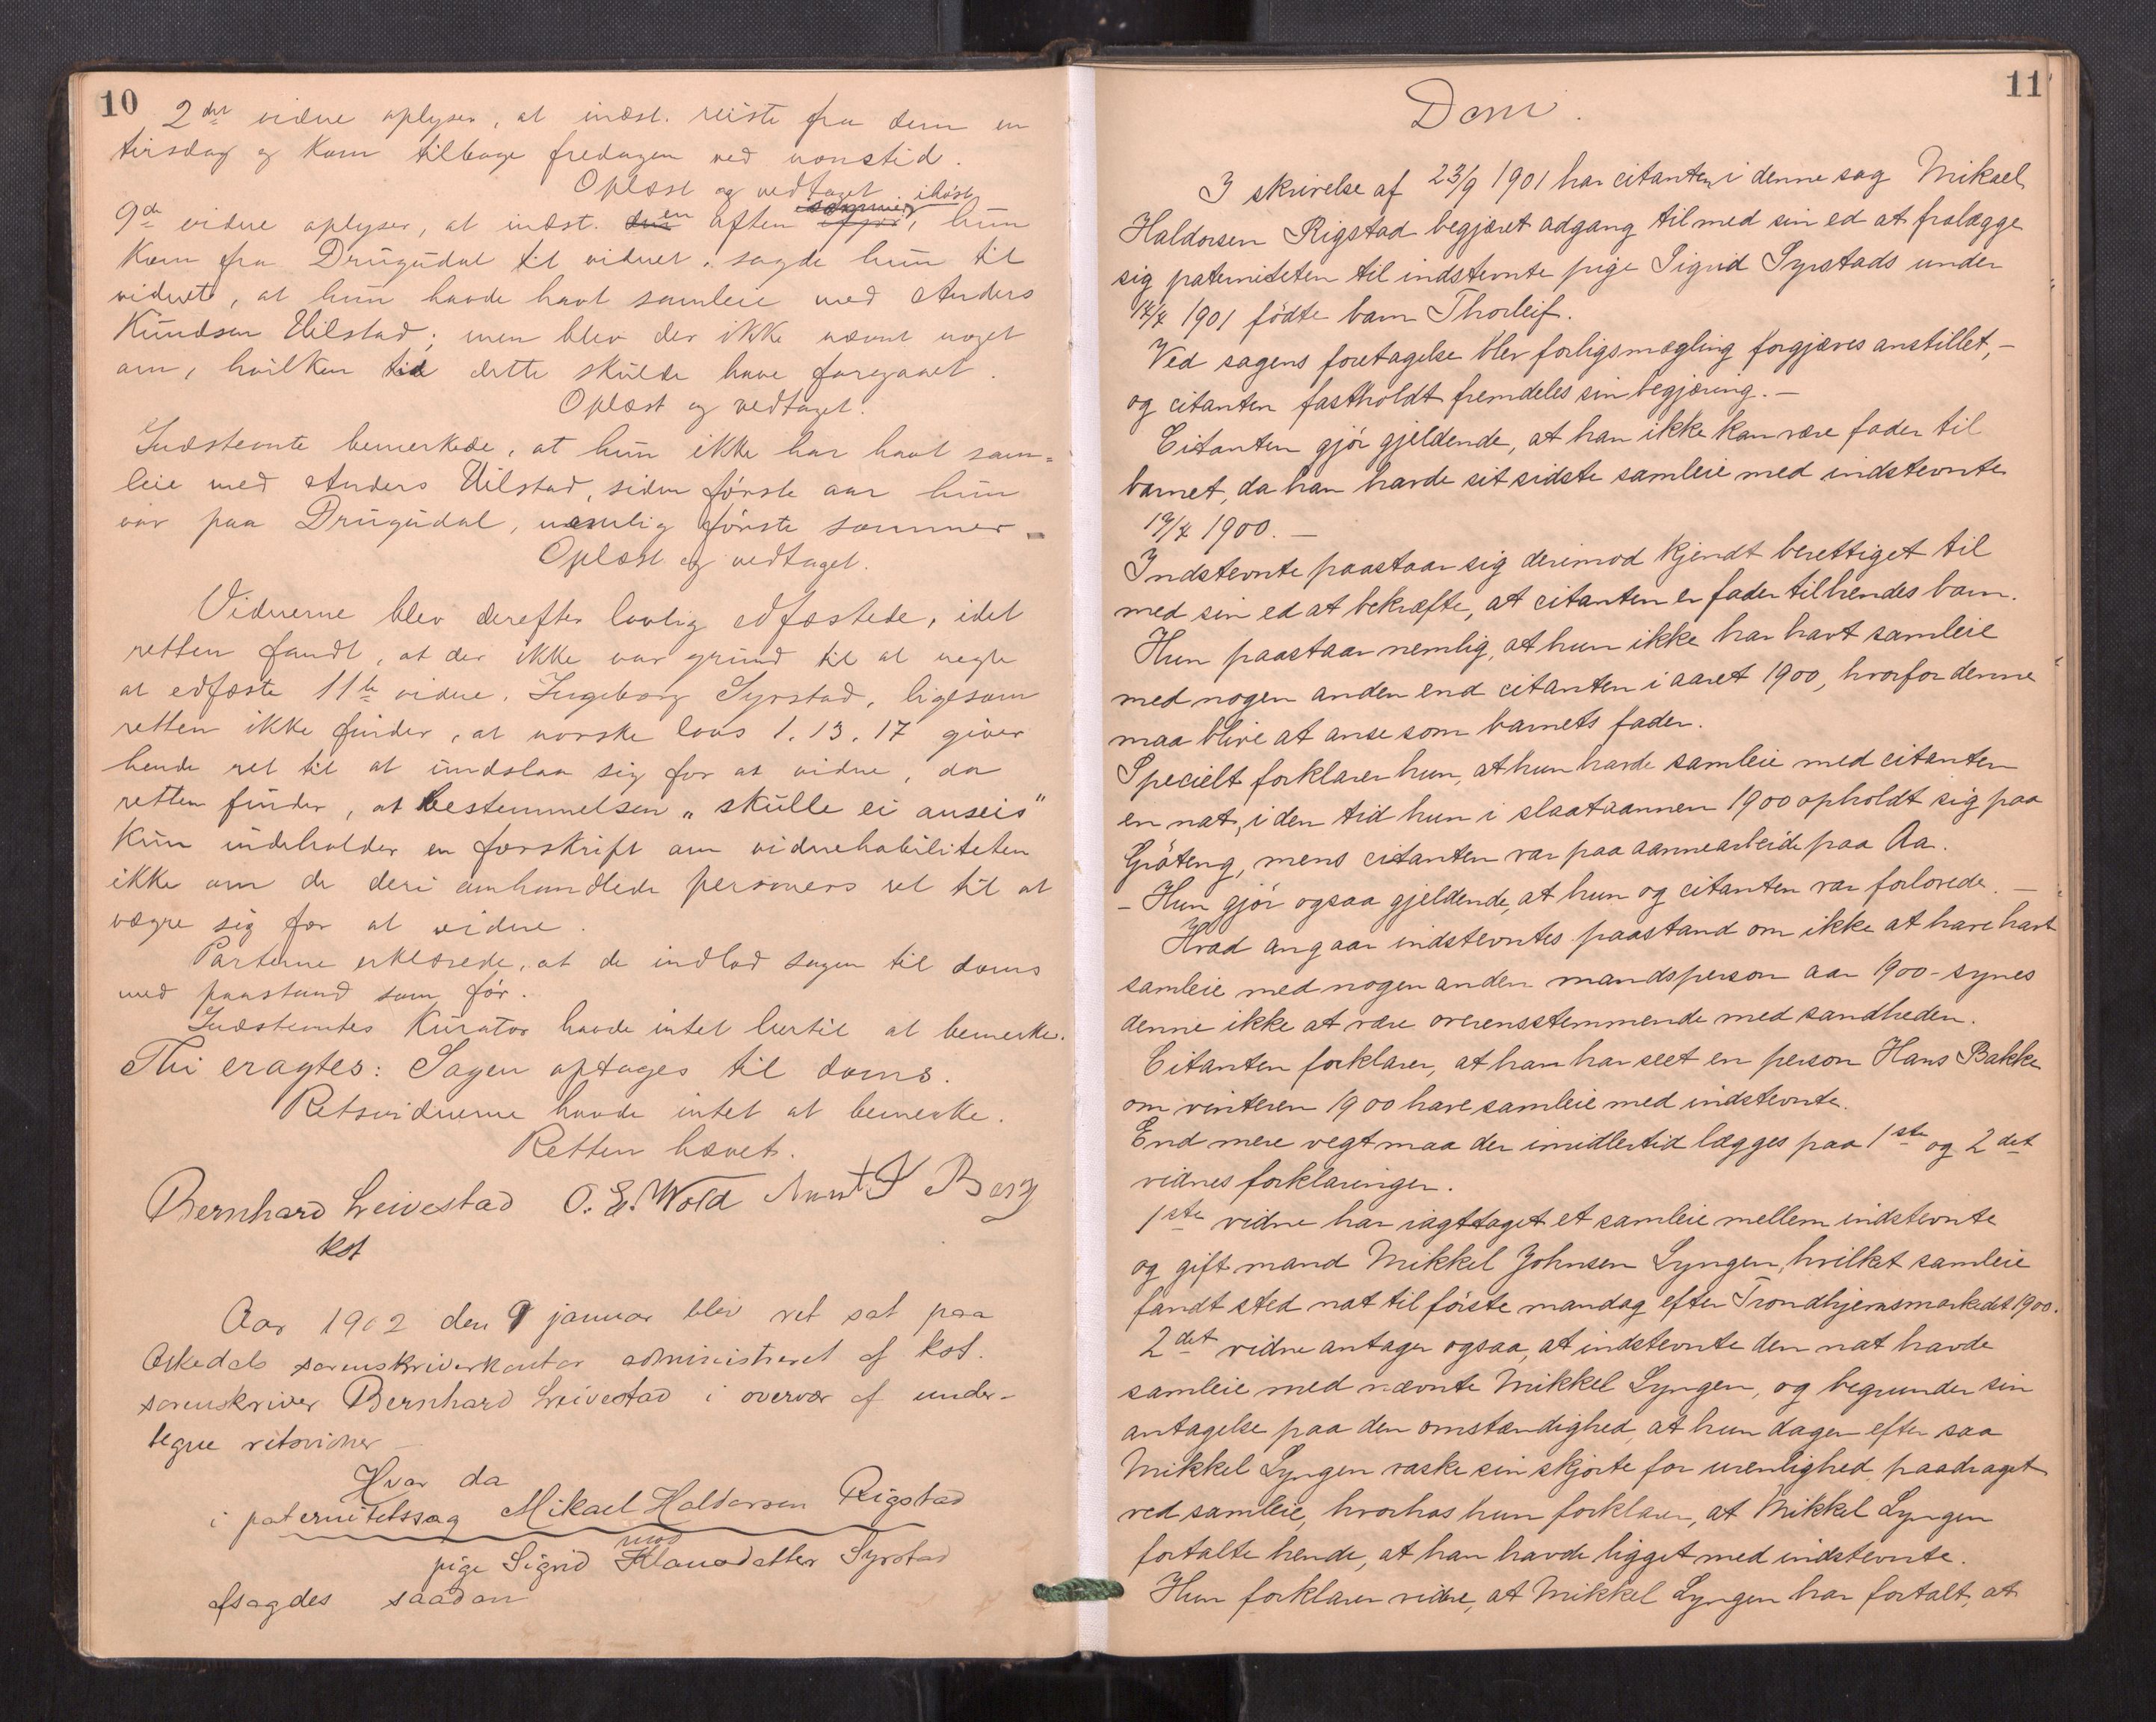 10
2det vidne oplyser, at indst. reiste fra dem en
tirsdag og kom tilbage fredagen ved nonstid.
Oplæst og vedtaget.
9de vidne oplyser, at indst. en aften ihøst, hun
kom fra Drugudal til vidnet, sagde hun til
vidnet, at hun havde havt samleie med Anders
Knudsen Uilstad; men blev der ikke nævnt noget
om, hvilken tid dette skulde have foregaaet.
Oplæst og vedtaget.
Indstevnte bemerkede, at hun ikke har havt sam=
leie med Anders Uilstad, siden første aar hun
var paa Drugudal, nemlig første sommer.
Oplæst og vedtaget.
Vidnerne blev derefter lovlig edfæstede, idet
retten fandt, at der ikke var grund til at negte
at edfæste 11te vidne, Ingeborg Syrstad, ligesom
retten ikke finder, at norske lovs 1. 13. 17 giver
hende ret til at undslaa sig for at vidne, da
retten finder, at bestemmelsen „skulle ei anseis"
kun indeholder en forskrift om vidnehabiliteten
ikke om de deri omhandlede personers ret til at
vægre sig for at vidne.
Parterne erklærede, at de indlod sagen til doms
med paastand som før.
Indstevntes kurator havde intet hertil at bemerke.
Thi eragtes: Sagen optages til doms.
Retsvidnerne havde intet at bemerke.
Retten hævet.
Bernhard Leivestad O. E. Wold Berg
kst
Aar 1902 den 9 januar blev ret sat paa
Orkedals sorenskriverkontor administreret af kst.
sorenskriver Bernhard Leivestad i overvær af under-
tegne retsvidner
Hvor da
i paternitetssag Mikael Haldorsen Rigstad
mod
pige Sigrid Klausdatter Syrstad
afsagdes saadan
11
Dom.
I skrivelse af 23/9 1901 har citanten i denne sag Mikael
Haldorsen Rigstad begjæret adgang til med sin ed at fralægge
sig paterniteten til indstevnte pige Sigrid Syrstads under
1901 fødte barn Thorleif.
Ved sagens foretagelse blev forligsmægling forgjæves anstillet, -
og citanten fastholdt fremdeles sin begjæring. -
Citanten gjør gjeldende, at han ikke kan være fader til
barnet, da han havde sit sidste samleie med indstevnte
1900. -
Indstevnte paastaar sig derimod kjendt berettiget til
med sin ed at bekræfte, at citanten er fader til hendes barn.
Hun paastaar nemlig, at hun ikke har havt samleie
med nogen anden end citanten i aaret 1900, hvorfor denne
maa blive at anse som barnets fader.
Specielt forklarer hun, at hun havde samleie med citanten
en nat, i den tid hun i slaataannen 1900 opholdt sig paa
Grøteng, mens citanten var paa aannearbeide paa Aa.
- Hun gjør ogsaa gjeldende, at hun og citanten var forlovede. -
Hvad angaar indstevntes paastand om ikke at have havt
samleie med nogen anden mandsperson aar 1900 - synes
denne ikke at være overensstemmende med sandheden.
Citanten forklarer, at han har seet en person Hans Bakke
om vinteren 1900 have samleie med indstevnte.
End mere vegt maa der imidlertid lægges paa 1ste og 2det
vidnes forklaringer.
1ste vidne har iagttaget et samleie mellem indstevnte
og gift mand Mikkel Johnsen Lyngen, hvilket samleie
fandt sted nat til første mandag efter Trondhjemsmarkedet 1900.
2det vidne antager ogsaa, at indstevnte den nat havde
samleie med nævnte Mikkel Lyngen, og begrunder sin
antagelse paa den omstændighed, at hun dagen efter saa
Mikkel Lyngen vaske sin skjorte for urenlighed paadraget
ved samleie, hvorhos hun forklarer, at Mikkel Lyngen
fortalte hende, at han havde ligget med indstevnte.
Hun forklarer videre, at Mikkel Lyngen har fortalt, at